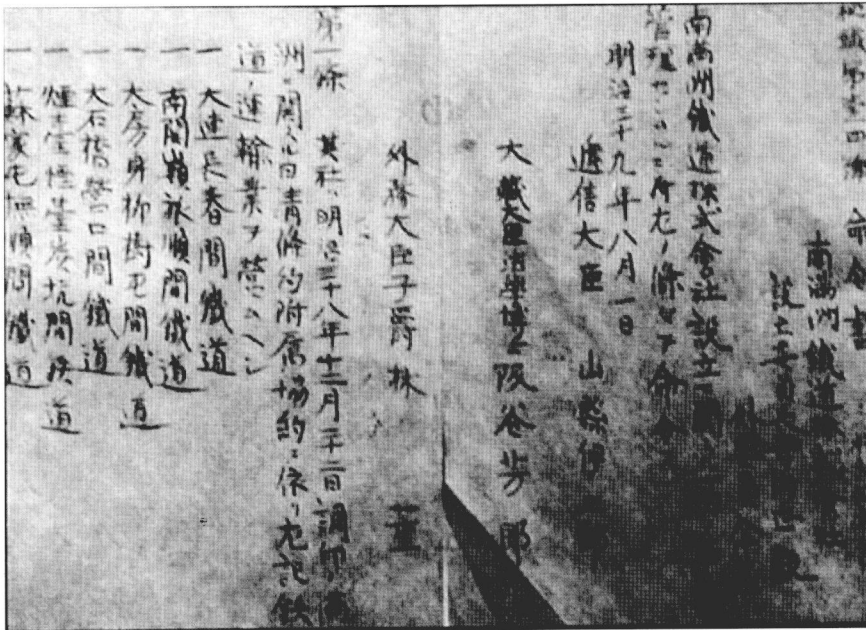 命令書
南滿洲鐵道
設立委員
南滿洲鐵道株式會社設立
管理 左ノ條 ヲ命
明治三十九年八月一日
遞信大臣 山縣伊
大藏大臣法學博士阪谷芳郎
外務大臣子爵林 董
第一條 其社ハ明治三十八年十二月二十二日調印ノ滿
洲ニ關スル日清條約附屬協約ニ依リ左記鐵
道ノ運輸業ヲ營ムヘシ
一 大連長春間鐵道
一 南關嶺旅順間鐵道
一 大房身柳樹屯間鐵道
一 大石橋營口間鐵道
一 煙臺煙臺炭坑間鐵道
一 蘇家屯撫順間鐵道